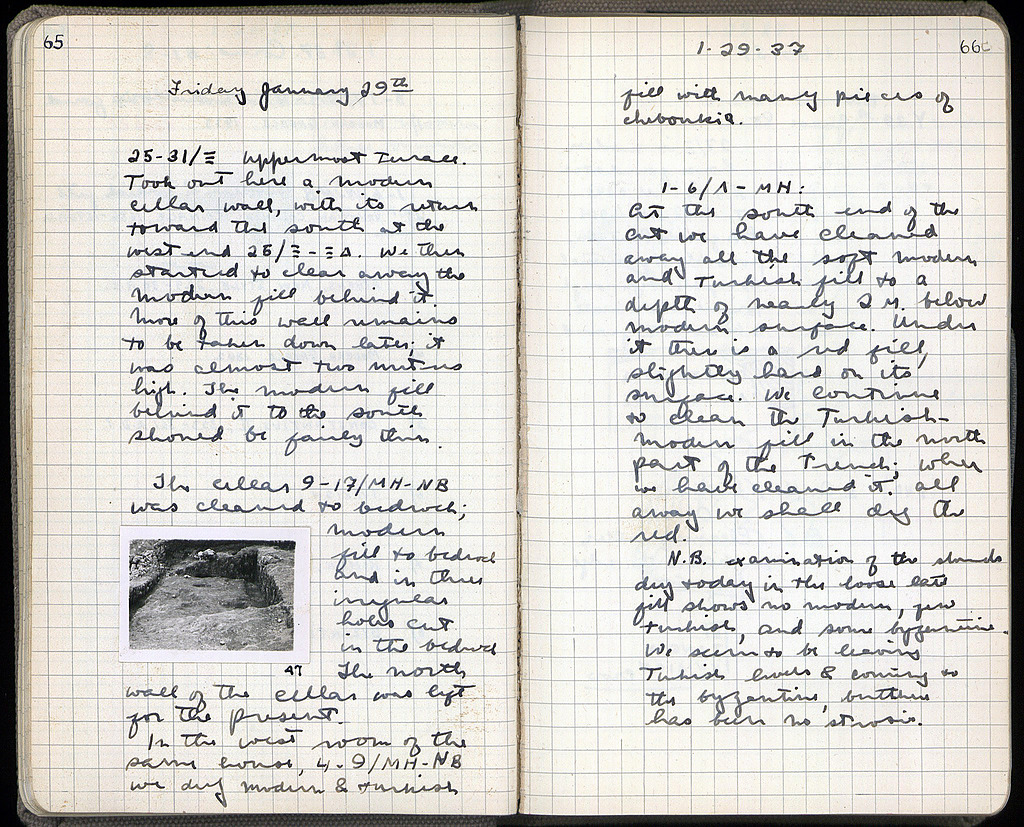 65
Friday January 29th
25-31/Ξ Uppermost Terrace.
Took out here a modern
cellar wall, with its return
toward the south at the
west end 26/Ξ-ΞΔ. We then
started to clear away the
modern fill behind it.
More of this wall remains
to be taken down later; it
was almost two metres
high. The modern fill
behind it to the south
should be fairly thin.
The cellar 9-17/MH-NB
was cleaned to bedrock;
modern
fill to bedrock
and in three
irregular
holes cut
in the bedrock
47 The north
wall of the cellar was left
for the present.
In the west room of the
same house, 4-9/MH-NB
we dug modern & turkish
1-29-37
66
fill with many pieces of
chiboukia.
1-6/Λ-MH:
At the south end of the
cut we have cleaned
away all the soft modern
and Turkish fill to a
depth of nearly 2 M. below
modern surface. Under
it there is a red fill,
slightly hard on its
surface. We continue
to clean the Turkish-
modern fill in the north
part of the Trench; when
we have cleaned it all
away we shall dig the
red.
N.B. examination of the sherds
dug today in the loose late
fill shows no modern, few
turkish, and some byzantine.
We seem to be leaving
Turkish levels & coming to
the byzantine, but there
has been no strosis.